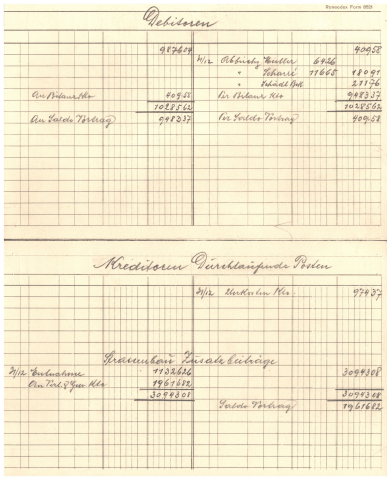 Ronasadex Form 8531
Debitoren
987604 40958
31/12 Abbuchg Müller 6426
" Scharrl 11665 18091
" Schuldt Bek 21176
An Bilanz Kto 40958 Per Bilanz Kto 948337
1028562 1028562
An Saldo Vortrag 948337 Per Saldo Vortrag 40958
Kreditoren Durchlaufende Posten
31/12 Unkosten Kto 97437
Strassenbau Zusatzbeiträge
31/12 Entnahme 1132626 3094308
An Verl. & Gew Kto 1961682
3094308 3094308
Saldo Vortrag 1961682